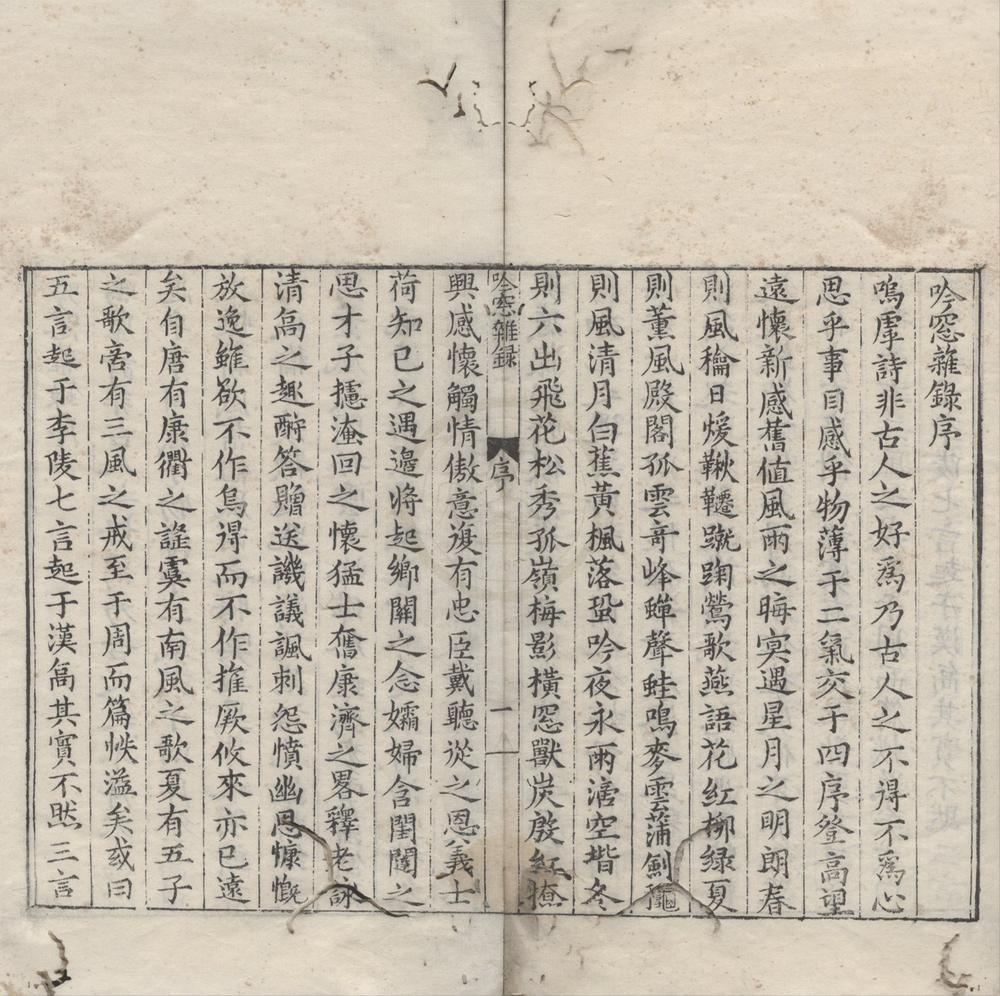 吟窓雜錄序
嗚虖詩非古人之好爲乃古人之不得不爲心
思乎事目感乎物薄于二氣交于四序登高望
遠懷新感舊值風雨之晦冥遇星月之明朗春
則風穐日煖鞦韆蹴踘鶯歌燕語花紅柳綠夏
則薰風殿閣孤雲奇峰蟬聲蛙鳴麥雲蒲
則風清月白蕉黃楓落蛩吟夜永雨滴空堦冬
則六出飛花松秀孤嶺梅影橫窓獸炭殷紅
吟窓雜錄 序 一
興感懷觸情傲意復有忠臣戴聽從之恩義士
荷知已之遇邊將起鄉關之念孀婦含閨闥之
思才子攄淹回之懷猛士奮康濟之畧釋老詠
清高之趣酧答贈送譏議諷刺怨憤幽思慷慨
放逸雖欲不作烏得而不作搉厥攸來亦已遠
矣自唐有康衢之謡虞有南風之歌夏有五子
之歌啇有三風之戒至于周而篇帙溢矣或曰
五言起于李陵七言起于漢高其實不然三言